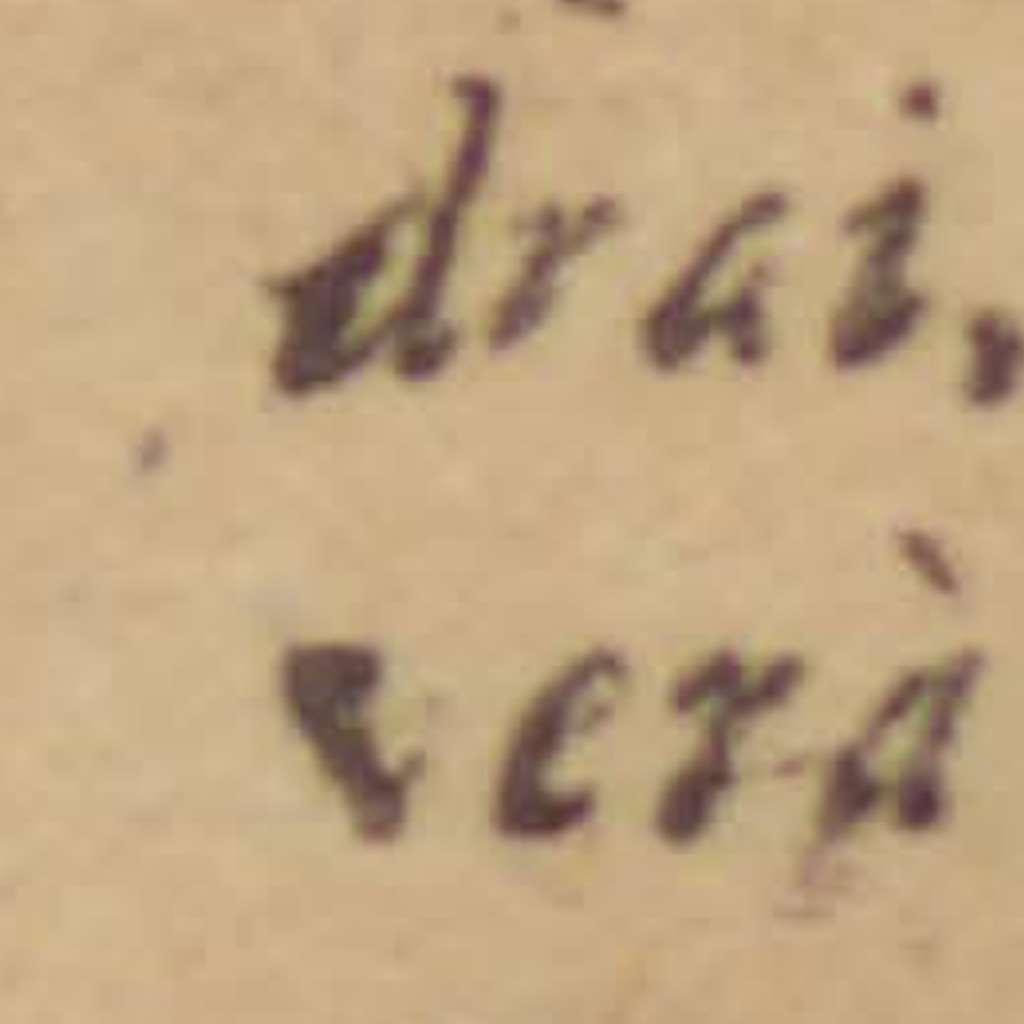 drai,
verà